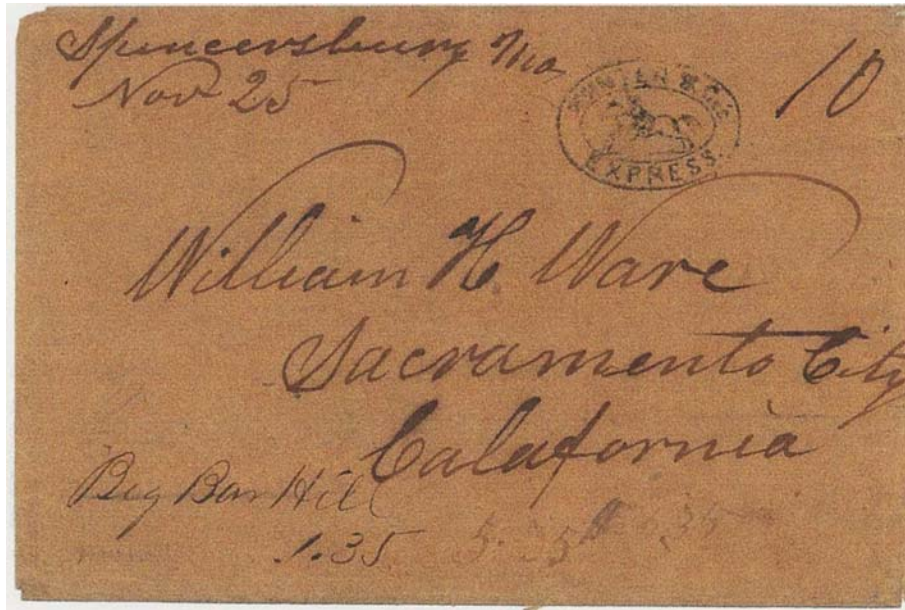 Spencersburg Mo
Nov 25
10
HUNTER & CO'S
EXPRESS.
William H. Ware
Sacramento City
Calafornia
Big Bar Hill
1.35